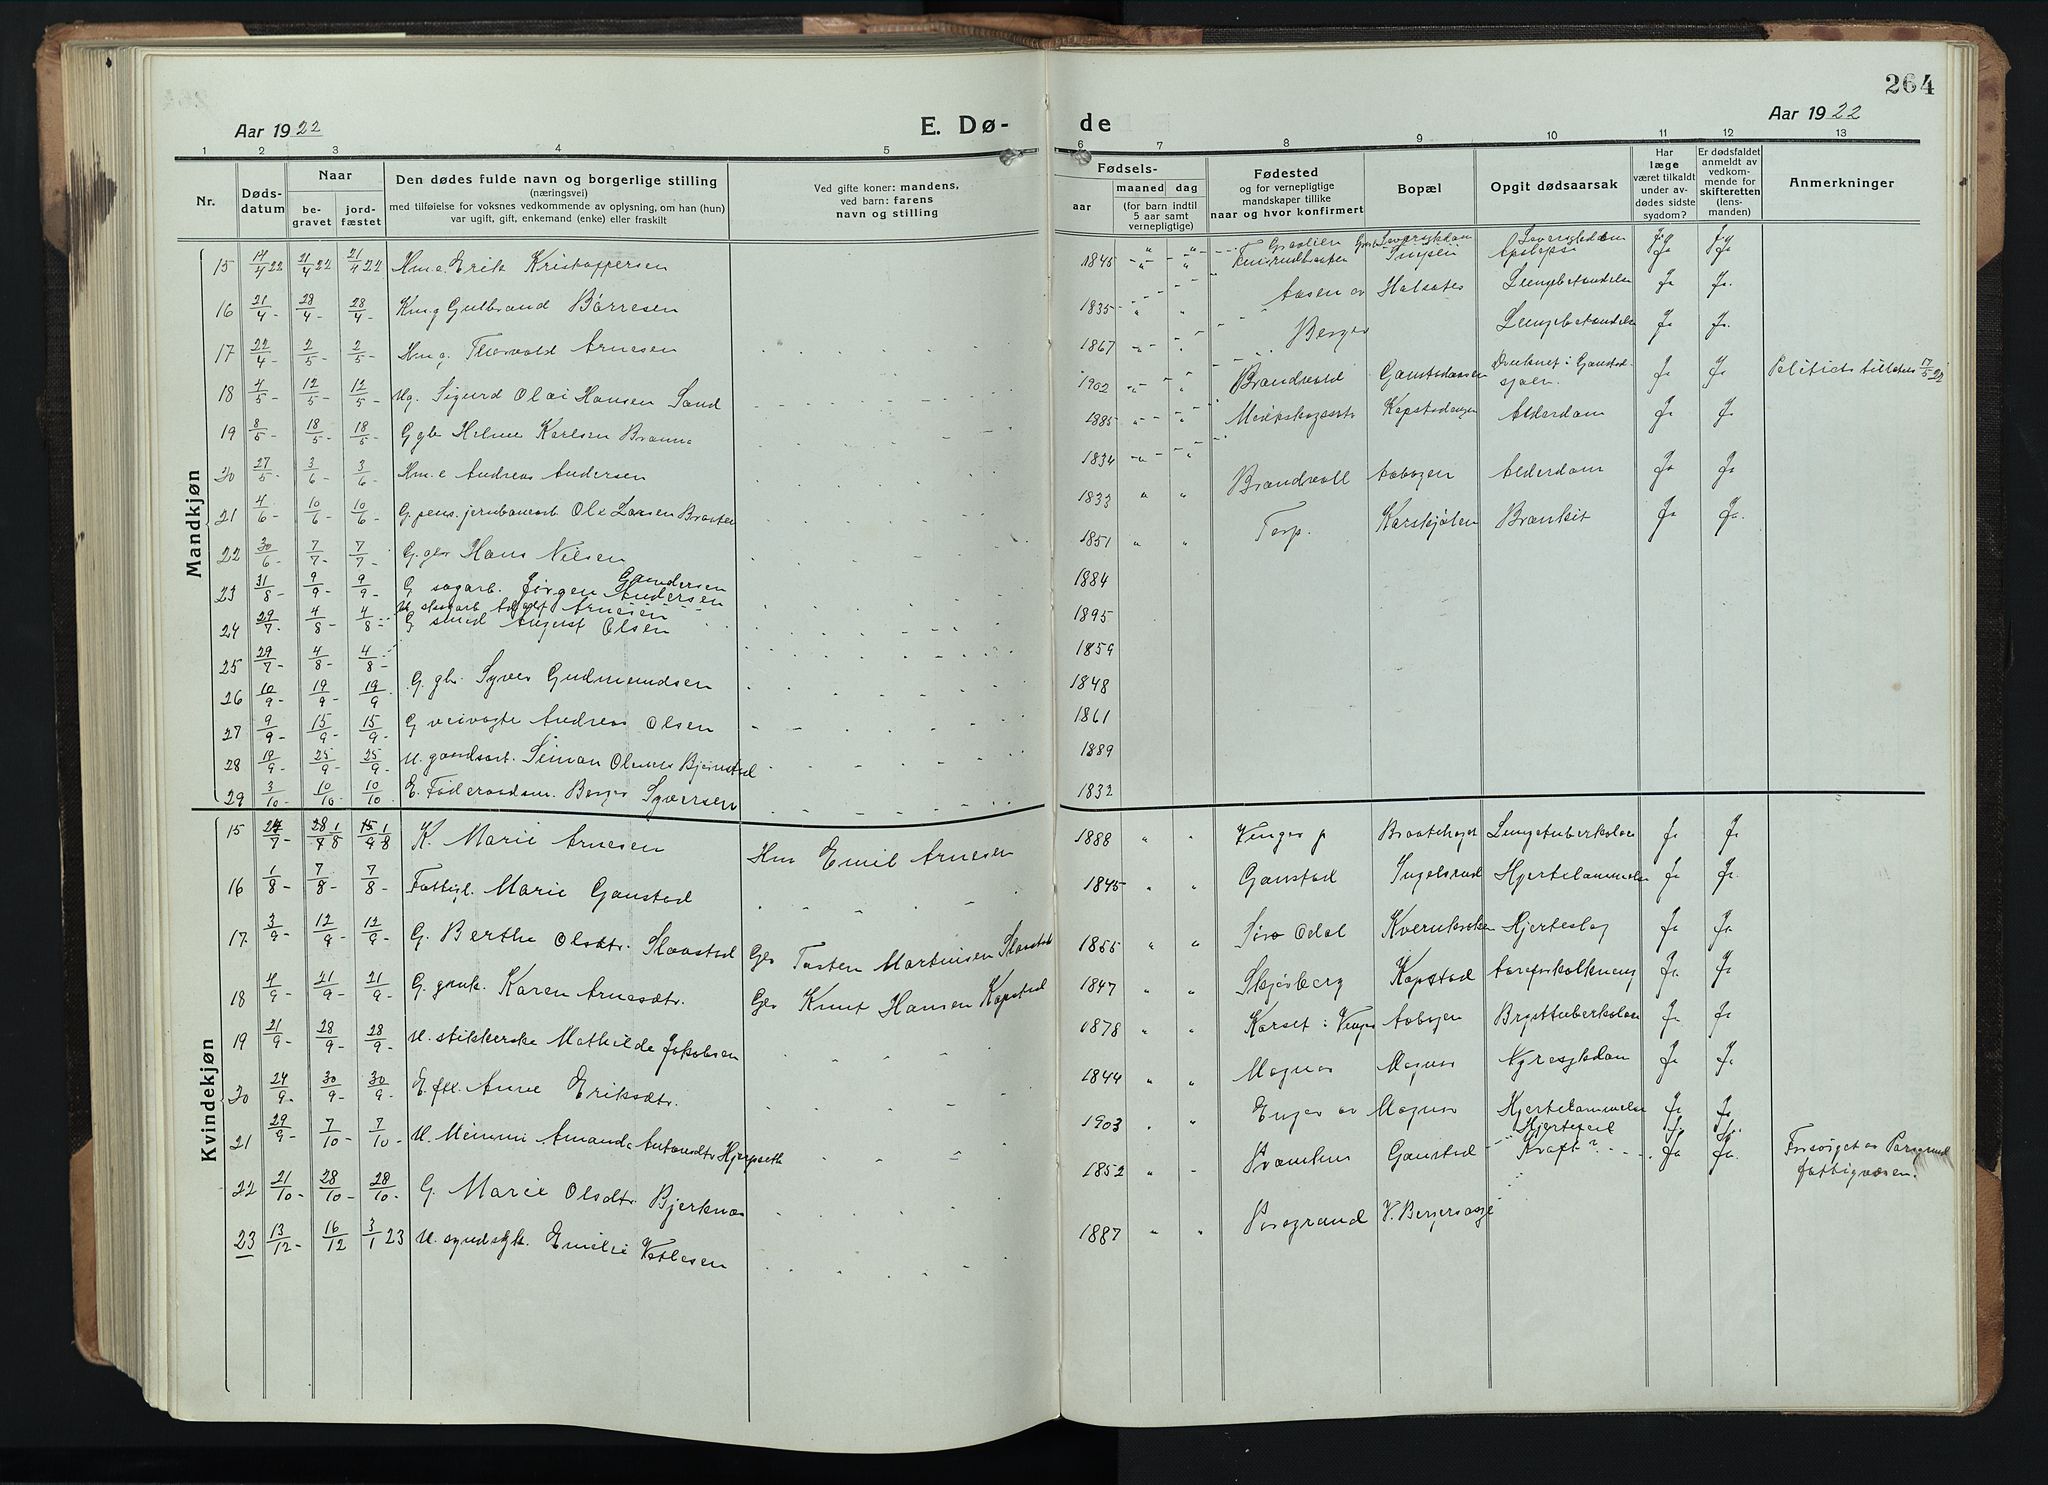 264
Aar 1922 E. Dø- de Aar 1922
1 2 3 4 5 6 7 8 9 10 11 12 13
Nr. Døds-datum Naar be-gravet jord-fæstet Den dødes fulde navn og borgerlige stilling (næringsvei) med tilføielse for voksnes vedkommende av oplysning, om han (hun) var ugift, gift, enkemand (enke) eller fraskilt Ved gifte koner: mandens, ved barn: farens navn og stilling Fødsels- aar maaned dag (for barn indtil 5 aar samt vernepligtige) Fødested og for vernepligtige mandskaper tillike naar og hvor konfirmert Bopæl Opgit dødsaarsak Har læge været tilkaldt under av-dødes sidste sygdom? Er dødsfaldet anmeldt av vedkom-mende for skifteretten (lens-manden) Anmerkninger
Mandkjøn
15 14/4 22 21/4 22 21/4 22 Hm.e. Erik Kristoffersen 1845 Ja Ja
16 21/4 - 28/4 - 28/4 - Hm.g Gulbrand Børresen 1835 Aasen Lungebetændelse Ja Ja.
17 22/4 - 2/5 - 2/5 - Hm g. Thorvald Arnesen 1867 Berger Lungebetændelse Ja Ja.
18 4/5 - 12/5 - 12/5 - Ug. Sigurd Olai Hansen Sand 1902 Brandvold Druknet i Gaustadsjøen. Ja Ja Politiets tillatelse 17/5 22
19 8/5 - 18/5 - 18/5 - G gbr Helmer Karlsen Braa 1885 Alderdom Ja Ja
20 27/5 - 3/6 - 3/6 - Hm. e Andreas Andersen 1834 Brandvoll Aabogen Alderdom Ja Ja
21 4/6 - 10/6 - 10/6 - G. pens. jernbanearb Ole Larsen Braaten 1833 Torp. Ja Ja.
22 30/6 - 7/7 - 7/7 - G. gbr Hans Nilsen 1851
23 31/8 - 9/9 - 9/9 - G sagarb. Jørgen Andersen 1884
U. skogarb Adolf Arnesen
24 29/7 - 4/8 - 4/8 - G smed August Olsen 1895
25 29/7 - 4/8 - 4/8 - 1859
26 10/9 - 19/9 - 19/9 G. gbr. Syver Gudmundsen 1848
27 9/9 - 15/9 - 15/9 - G veivogte Andreas Olsen 1861
28 19/9 - 25/9 - 25/9 - U. gaardsarb. Simon Olaves Bjørnstad 1889
29 3/10 - 10/10 - 10/10 E. Føderaadsm. Berger Syversen 1832
Kvindekjøn
15 24/7 - 1/8 1/8 K. Marie Arnesen Hm Emil Arnesen 1888 Vinger p Lungetuberkolose Ja Ja
16 1/8 - 7/8 - 7/8 - Fattigl. Marie Gaustad 1845 Gaustad Ingelsrud Hjertelammelse Ja Ja.
17 3/9 - 12/9 - 12/9 - G. Berthe Olsdtr. Slaastad Gbr Torsten Martinsen Slaastad 1855 Søro Odal Hjerteslag Ja Ja
18 4/9 - 21/9 - 21/9 - G. gmk. Karen Arnesdtr. Gbr Knut Hansen Kopstad 1847 Skjeberg Kopstad Aareforkalkning Ja Ja
19 21/9 - 28/9 - 28/9 - U. stikkerske Mathilde Jakobsen 1878 Korset i Vinger Aabogen Brysttuberkolose Ja Ja
20 24/9 - 30/9 - 30/9 - E. fkl. Anne Eriksdtr. 1844 Magnor Magnor Nyresykdom Ja Ja
21 29/9 - 7/10 - 7/10 - U. Mimmi Amanda Antonsdtr Hjerpseth 1903 Magnor Hjertelammelse Ja Ja
Hjertefeil Ja Ja
22 21/10 - 28/10 - 28/10 - G. Marie Olsdtr Bjerknes 1852 Gaustad Kræft? Ja Ja. Forsørget av Porsgrund fattigvæsen.
23 13/12 - 16/12 - 3/1 23 U. sindssyk. Emilie Vetlesen 1887 Porsgrund